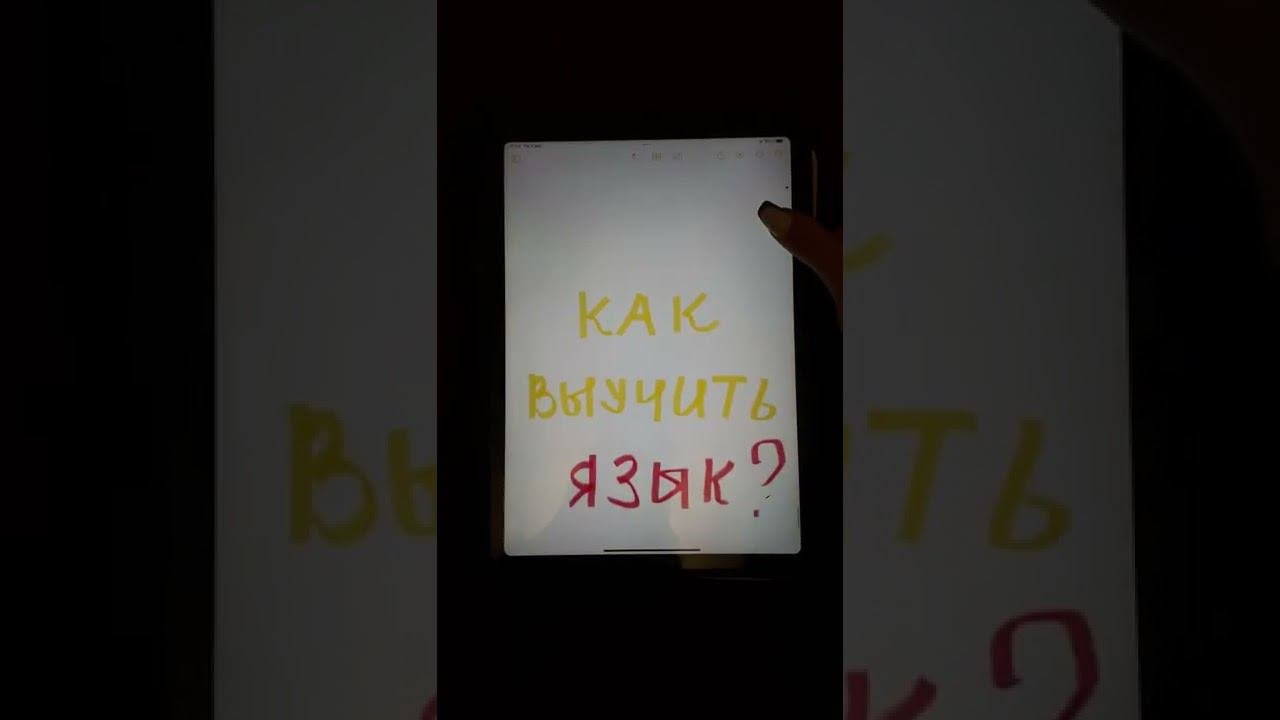 КАК
ВЫУЧИТЬ
ЯЗЫК?